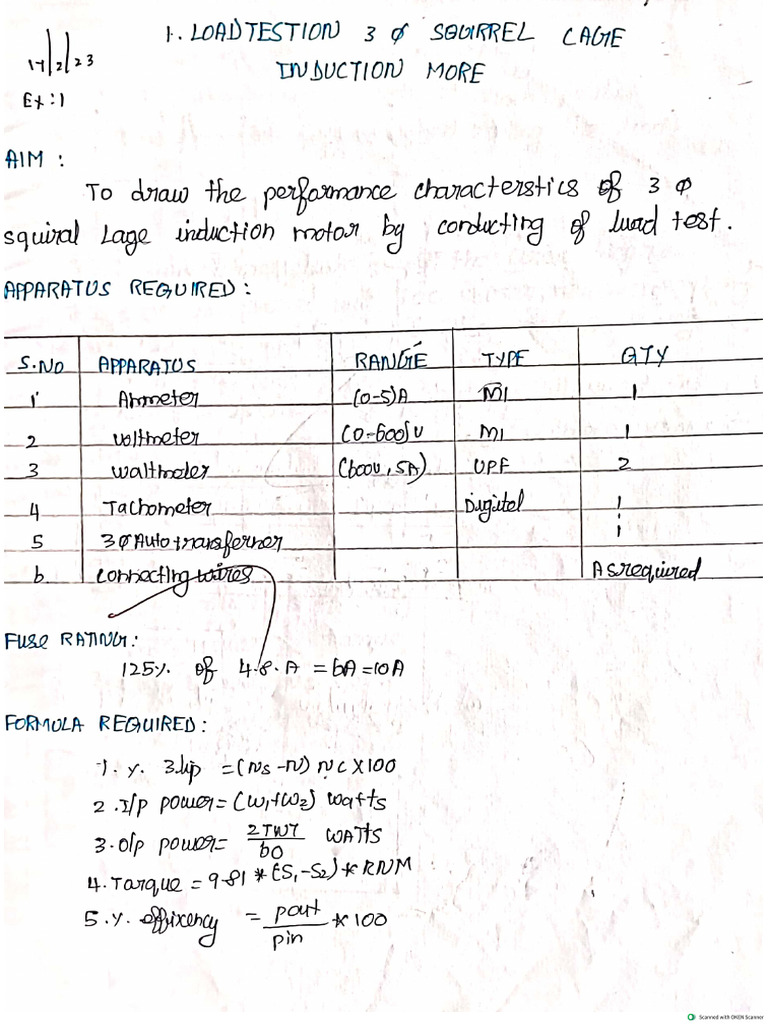 1. LOADTESTION 3 φ SQUIRREL CAGE
INDUCTION MORE
17/2/23
Ex:1
AIM :
To draw the performance characterstics of 3 φ
squiral Lage induction motor by conducting of luad test.
APPARATUS REQUIRED :
S.NO APPARATUS RANGE TYPE QTY
1 Ammeter (0-5)A MI 1
2 voltmeter (0-600)V MI 1
3 waltmeler (600V, 5A) UPF 2
4 Tachometer Digital 1
5 3φ Autotransferner 1
6 connecting wires Asrequired
FUSE RATING:
125%. of 4.8.A = 6A =10A
FORMULA REQUIRED :
1. %. Slip = (Ns -N) NC X100
2. I/p power = (W1+W2) watts
3. O/p power = 2TNT/60 WATTS
4. Tarque = 9.81 * (S1-S2) * RNM
5. %. effixency = pout/pin * 100
Scanned with OKEN Scanner